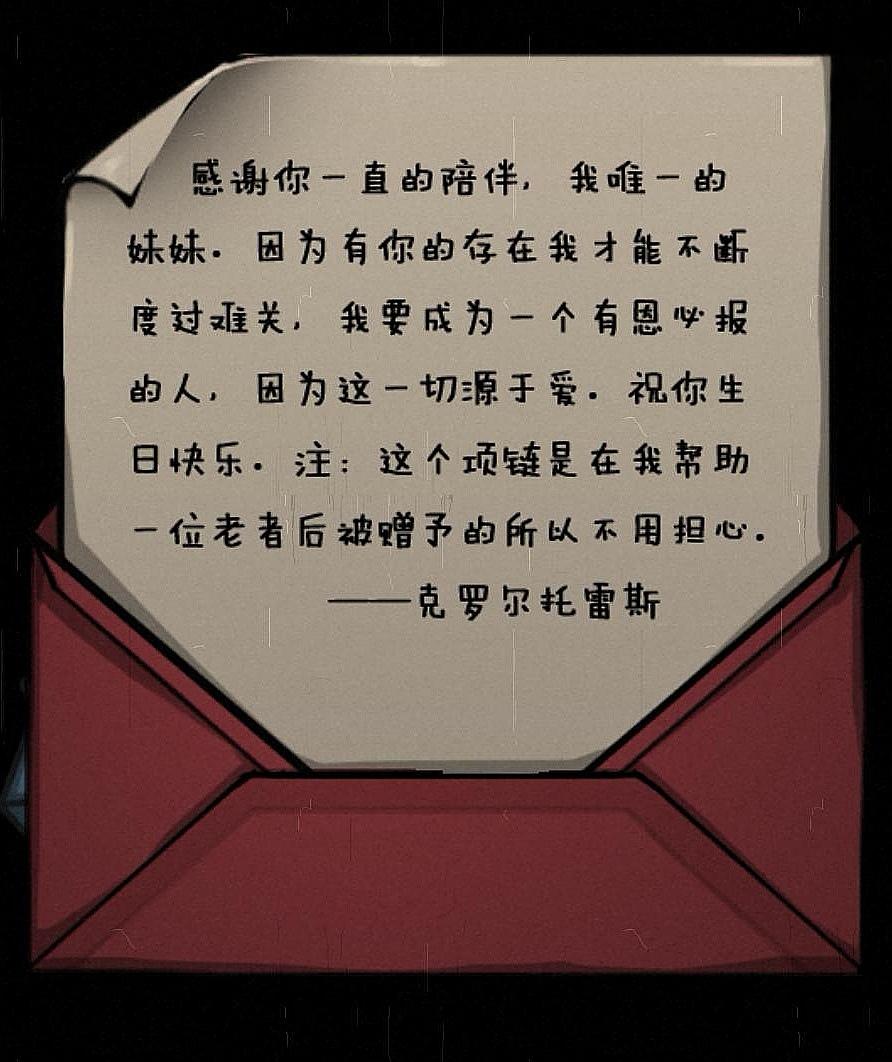 感谢你一直的陪伴，我唯一的
妹妹。因为有你的存在我才能不断
度过难关，我要成为一个有恩必报
的人，因为这一切源于爱。祝你生
日快乐。注：这个项链是在我帮助
一位老者后被赠予的所以不用担心。
——克罗尔托雷斯